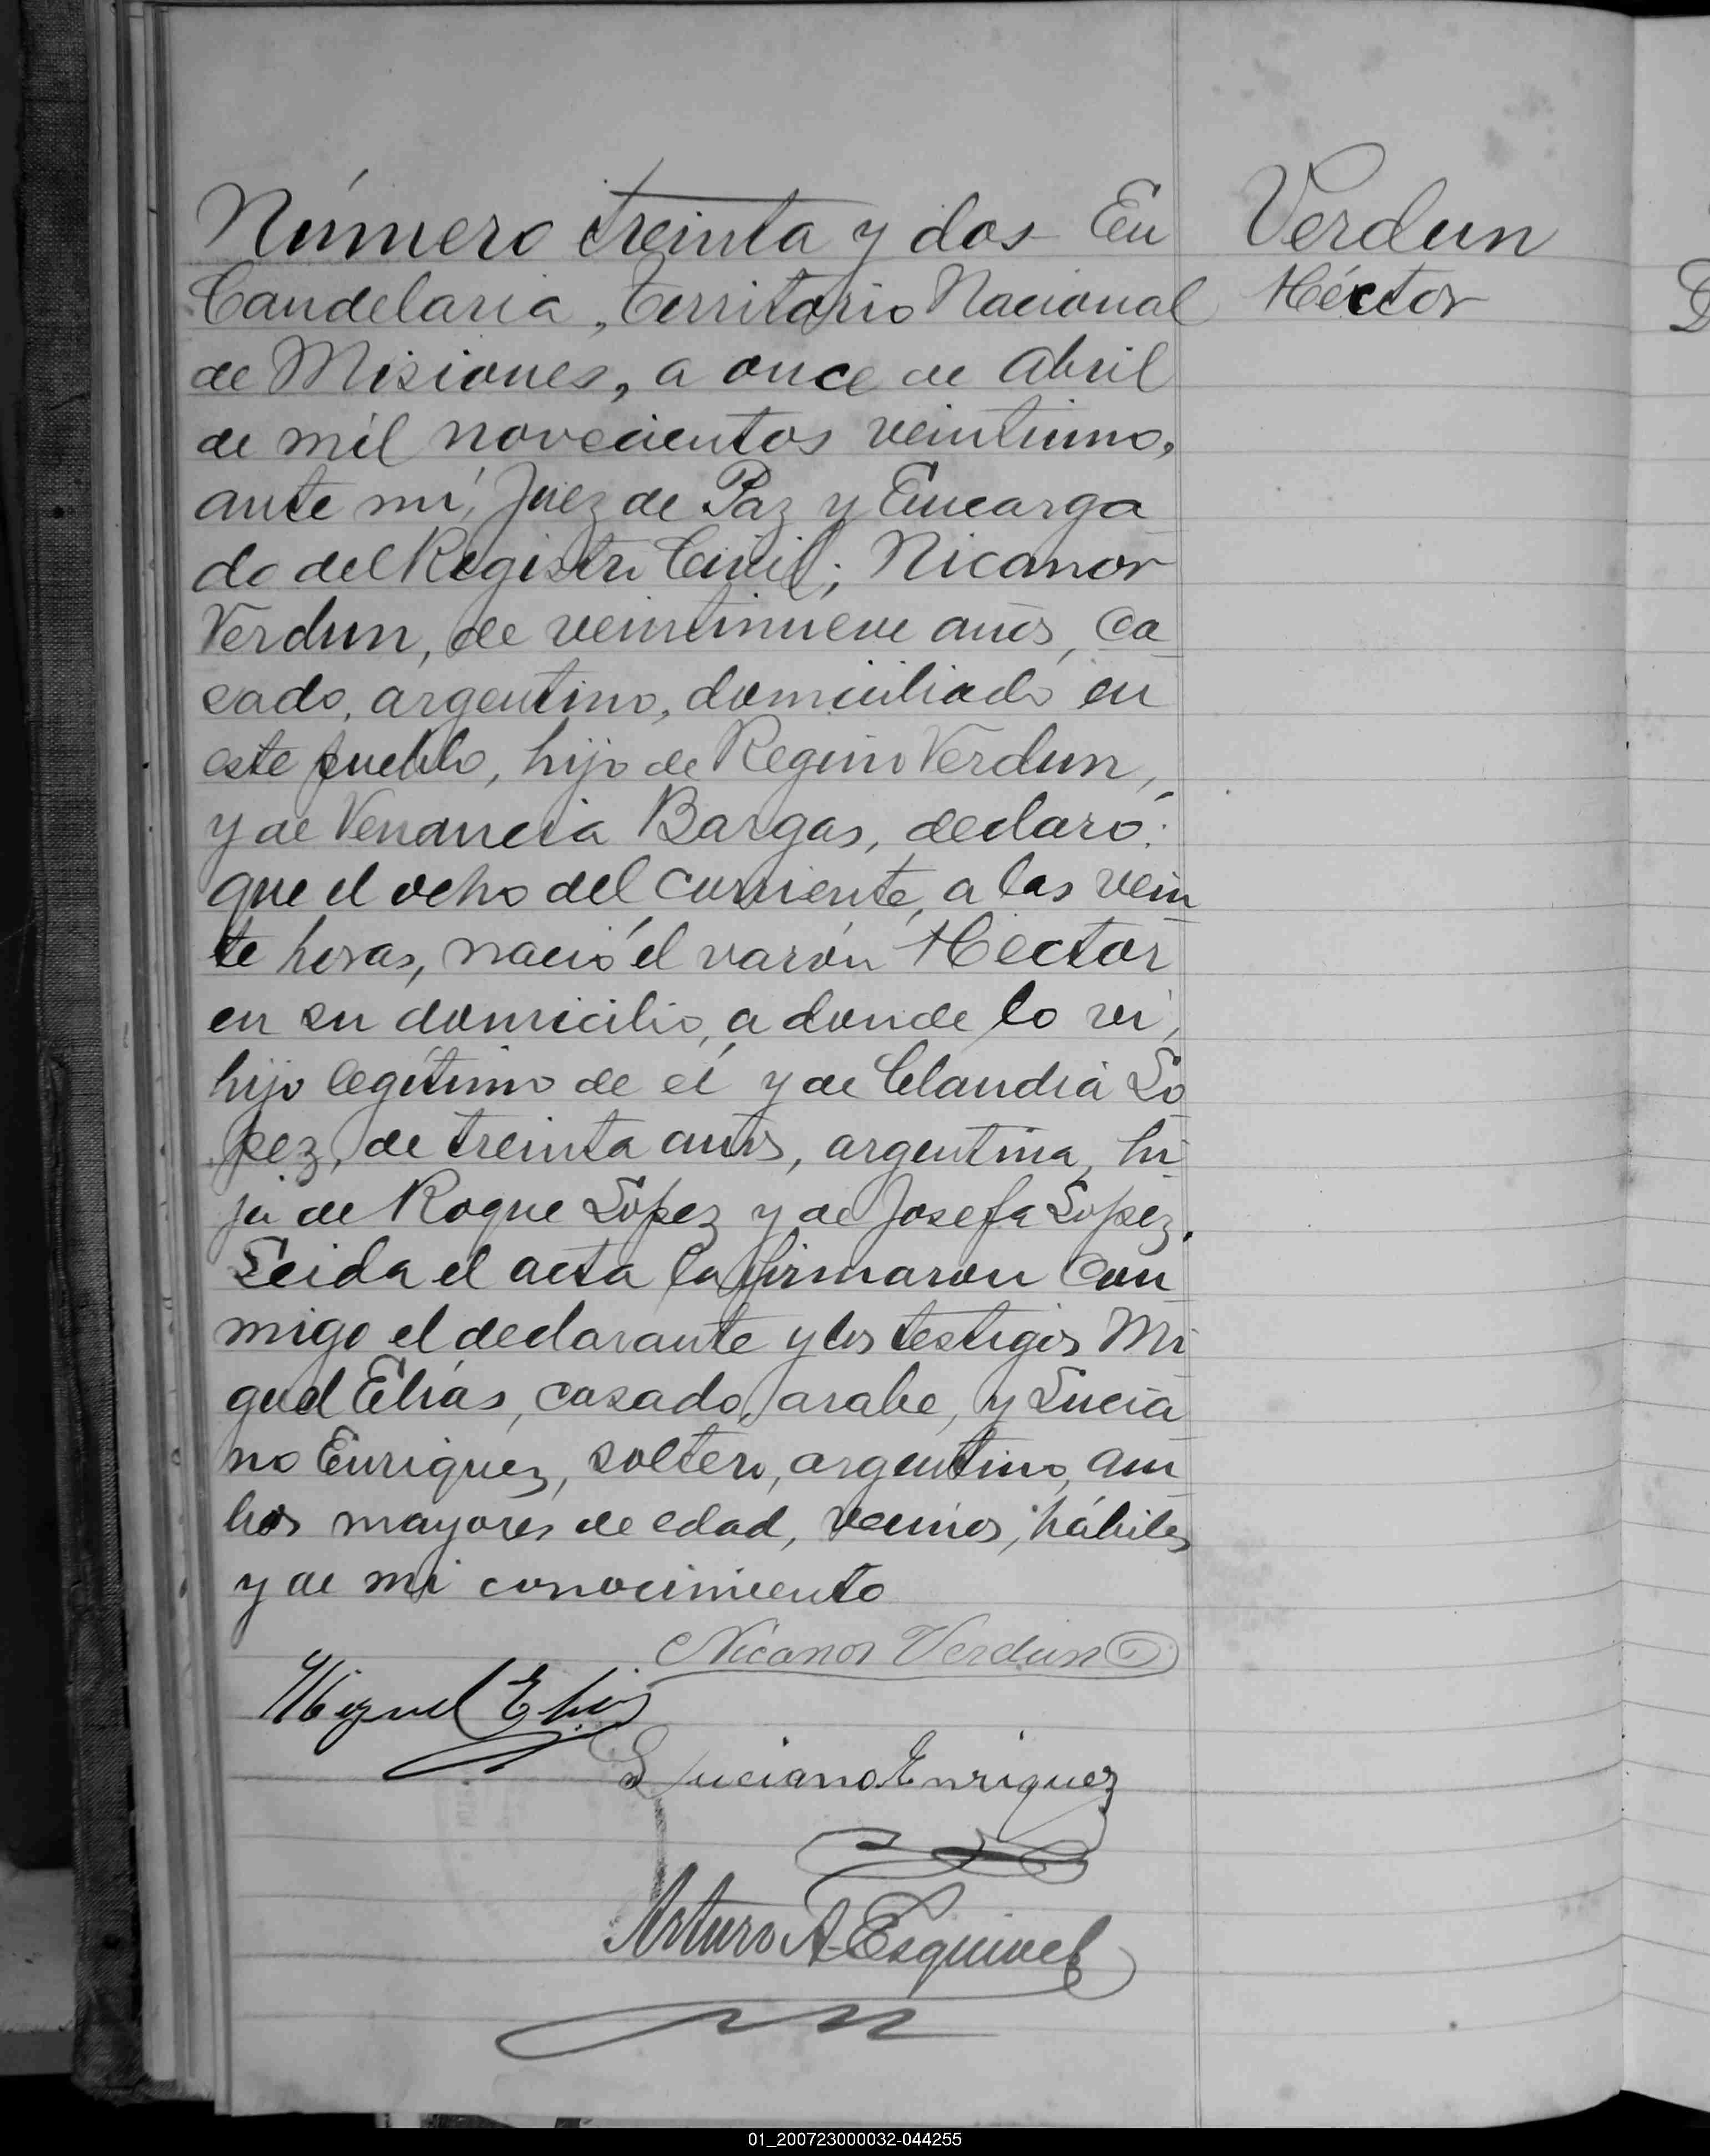 Número treinta y dos - En
Candelaria, Territorio Nacional
de Misiones, a once de abril
de mil novecientos veintiuno,
ante mí, Juez de Paz y Encarga
do del Registro Civil; Nicanor
Verdun, de veintinueve años, ca
sado, argentino, domiciliado en
este pueblo, hijo de Regino Verdun,
y de Venancia Bargas, declaró:
que el ocho del corriente, a las vein
te horas, nació el varón Héctor
en su domicilio, a donde lo vi,
hijo legítimo de él y de Claudia Lo
pez, de treinta años, argentina, hi
ja de Roque López y de Josefa López.
Leida el acta la firmaron con
migo el declarante y los testigos Mi
guel Elías, casado, arabe, y Lucia
no Enriquez, soltero, argentino, am
bos mayores de edad, vecinos, hábiles
y de mi conocimiento
Nicanor Verdun
Miguel Elias
Luciano Enriquez
Arturo A. Esquivel
Verdun
Héctor
01_200723000032-044255